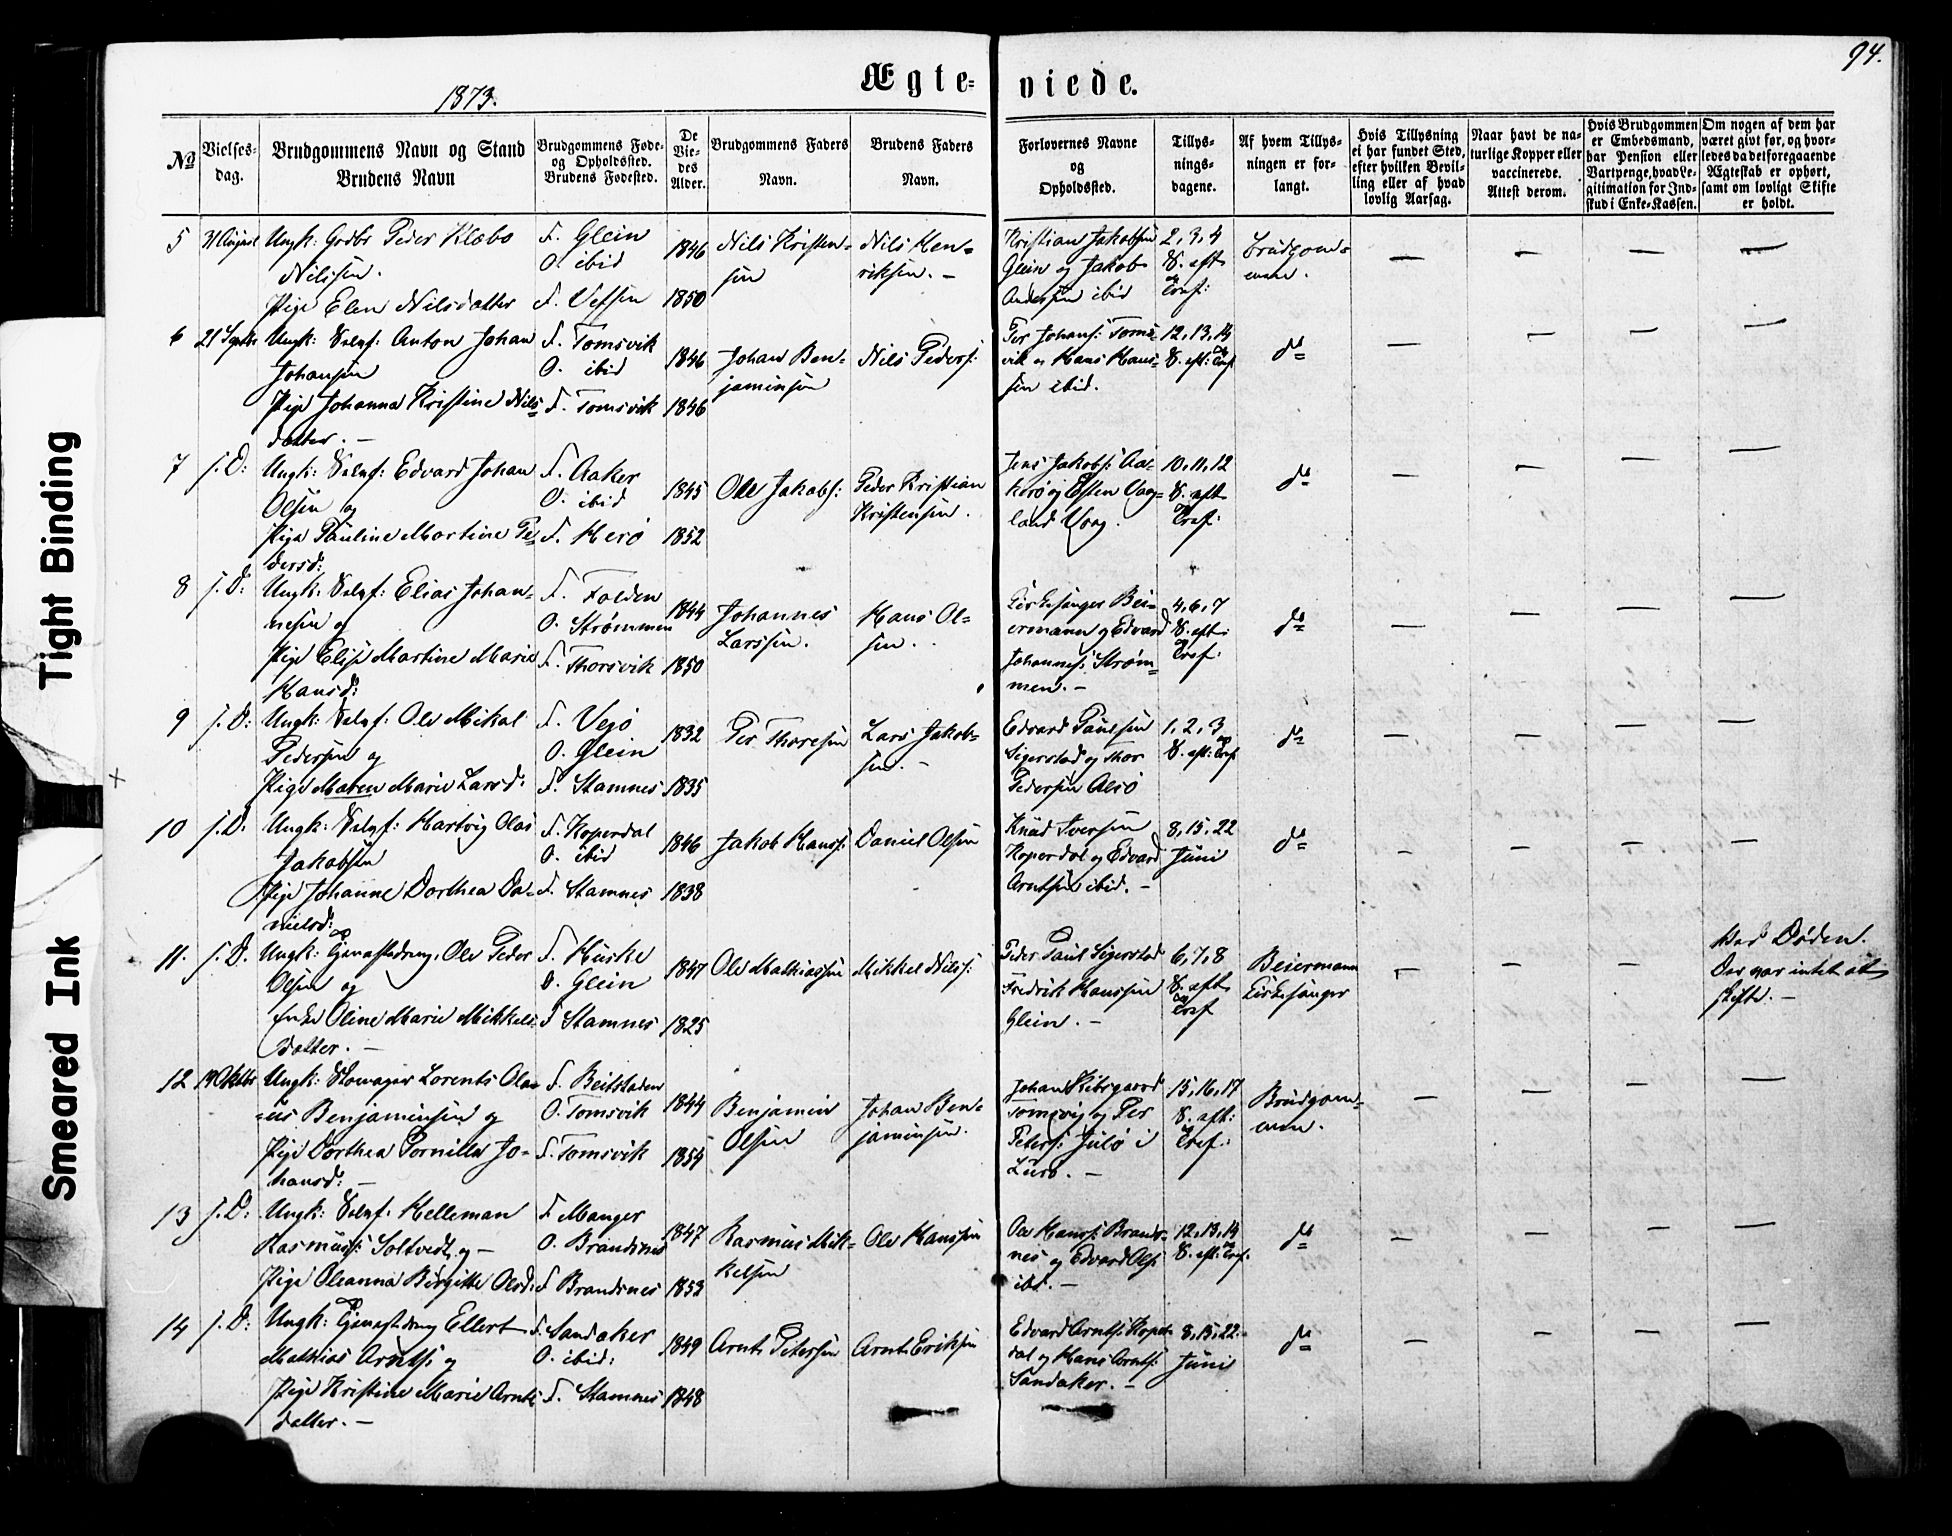 94.
Ægte-viede.
1873.
No
Vielses-
dag.
Brudgommens Navn og Stand
Brudens Navn
Brudgommens Føde-
og Opholdssted.
Brudens Fødested.
De
Vie-
des
Alder.
Brudgommens Faders
Navn.
Brudens Faders
Navn.
Forlovernes Navne
og
Opholdssted.
Tillys-
nings-
dagene.
Af hvem Tillys-
ningen er for-
langt.
Hvis Tillysning
ei har fundet Sted,
efter hvilken Bevil-
ling eller af hvad
lovlig Aarsag.
Naar havt de na-
turlige Kopper eller
vaccinerede.
Attest derom.
Hvis Brudgommen
er Embedsmand,
har Pension eller
Vartpenge, hvad Le-
gitimation for Ind-
skud i Enke-Kassen.
Om nogen af dem har
været givt før, og hvor-
ledes da det foregaaende
Ægteskab er ophørt,
samt om lovligt Skifte
er holdt.
5
August
Ungk: Grdbr Peder Klæbo
Nilssen.
Pige Elen Nilsdatter
F. Glein
O. ibid
F. Vefsen
1846
1850
Nils Kristen-
sen
Nils Hen-
riksen. -
Kristian Jakobsen
Glein og Jakob
Andersen ibid
2, 3, 4
S. eft.
Tref:
Brudgom-
men.
6
21 Septb
Ungk: Selvf: Anton Johan
Johansen
Pige Johanna Kristine Nils-
datter. -
F. Tomsvik
O. ibid
F. Tomsvik
1846
1846
Johan Ben-
jaminsen
Nils Peders:
Per Johans: Toms-
vik og Hans Hans-
sen ibid.
12, 13, 14
S. eft: Tref
do
7
s. D:
Ungk: Selvf: Edvard Johan
Olsen og
Pige Pauline Martine Pe-
dersd:
F. Aaker
O. ibid
F. Herø
1845
1852
Ole Jakobs:
Peder Kristian
Kristensen.
Jens Jakobs: Aa-
kerø og Esten Vaag-
land Vaag.
10, 11, 12
S. eft
Tref:
do
8
s. D:
Ungk: Selvf: Elias Johan-
nesen og
Pige Elise Martine Marie
Hansd:
F. Folden
O. Strømmen
F. Thorsvik
1844
1850
Johannes
Larssen.
Hans Ol-
sen.
Kirkesanger Bei-
ermann og Edvard
Johannes: Strøm-
men. -
4, 6, 7
S. eft:
Tref:
do
9
s. D:
Ungk: Selvf: Ole Mikal
Pedersen og
Pige Maren Marie Larsd:
F. Vegø
O. Glein
F. Stamnes
1832
1835
Per Thoresen
Lars Jakob-
sen. -
Edvard Paulsen
Sigerstad og Thor
Pedersen Alsø
1, 2, 3
S. eft: Tref
do
10
s. D:
Ungk: Selvf: Hartvig Olai
Jakobsen
Pige Johanne Dorthea Da-
nielsd:
F. Koperdal
O. ibid
F. Stamnes
1846
1838
Jakob Hanss:
Daniel Olsen
Knud Iversen
Koperdal og Edvard
Arntsen ibid. -
8, 15, 22
Juni
do
11.
s. D.
Ungk: Tjenestedreng, Ole Peder
Olsen og
Enke Oline Marie Mikkels-
datter. -
F. Huske
O. Glein
F Stamnes
1847
1825
Ole Mathiassen
Mikkel Nils:
Peder Paul Sigerstad
Fredrik Hanssen
Glein. -
6, 7, 8
S. eft
Tref
Beiermann
Kirkesanger
Ved Døden.
Der var intet at
skifte. -
12
19 Oktbr
Ungk: Lorents Ola-
us Benjaminsen og
Pige Dorthea Pernilla Jo-
hansd: -
F. Beitstaden
O. Tomsvik
F. Tomsvik
1844
1854
Benjamin
Olsen
Johan Ben-
jaminsen.
Johan Kibsgaard
Tomsvig og Per
Peters: Juløi
Lurø. -
15, 16, 17
S. eft:
Tref:
Brudgom-
men.
13
s. D:
Ungk: Selvf: Helleman
Rasmuss: Soltvedt, og -
Pige Oleanna Birgitte Olsd:
F. Manger
O. Brandsnes
F Brandsnes
1847
1853
Rasmus Mik-
kelsen
Ole Hanssen
Ole Hans: Brands-
nes og Edvard Ols:
ibd. -
12, 13, 14
S. eft: Tref:
do
14
s. D:
Ungk: Tjenestedreng Ellert
Mathias Arnts: og
Pige Kristine Marie Arnts-
datter. -
F. Sandaker
O. ibid:
F. Stamnes
1849
1848
Arnt Petersen
Arnt Eriksen
Edvard Arnts: Koper-
dal og Hans Arnts:
Sandaker. -
8, 15, 22.
Juni
do
Tight Binding
Smeared Ink